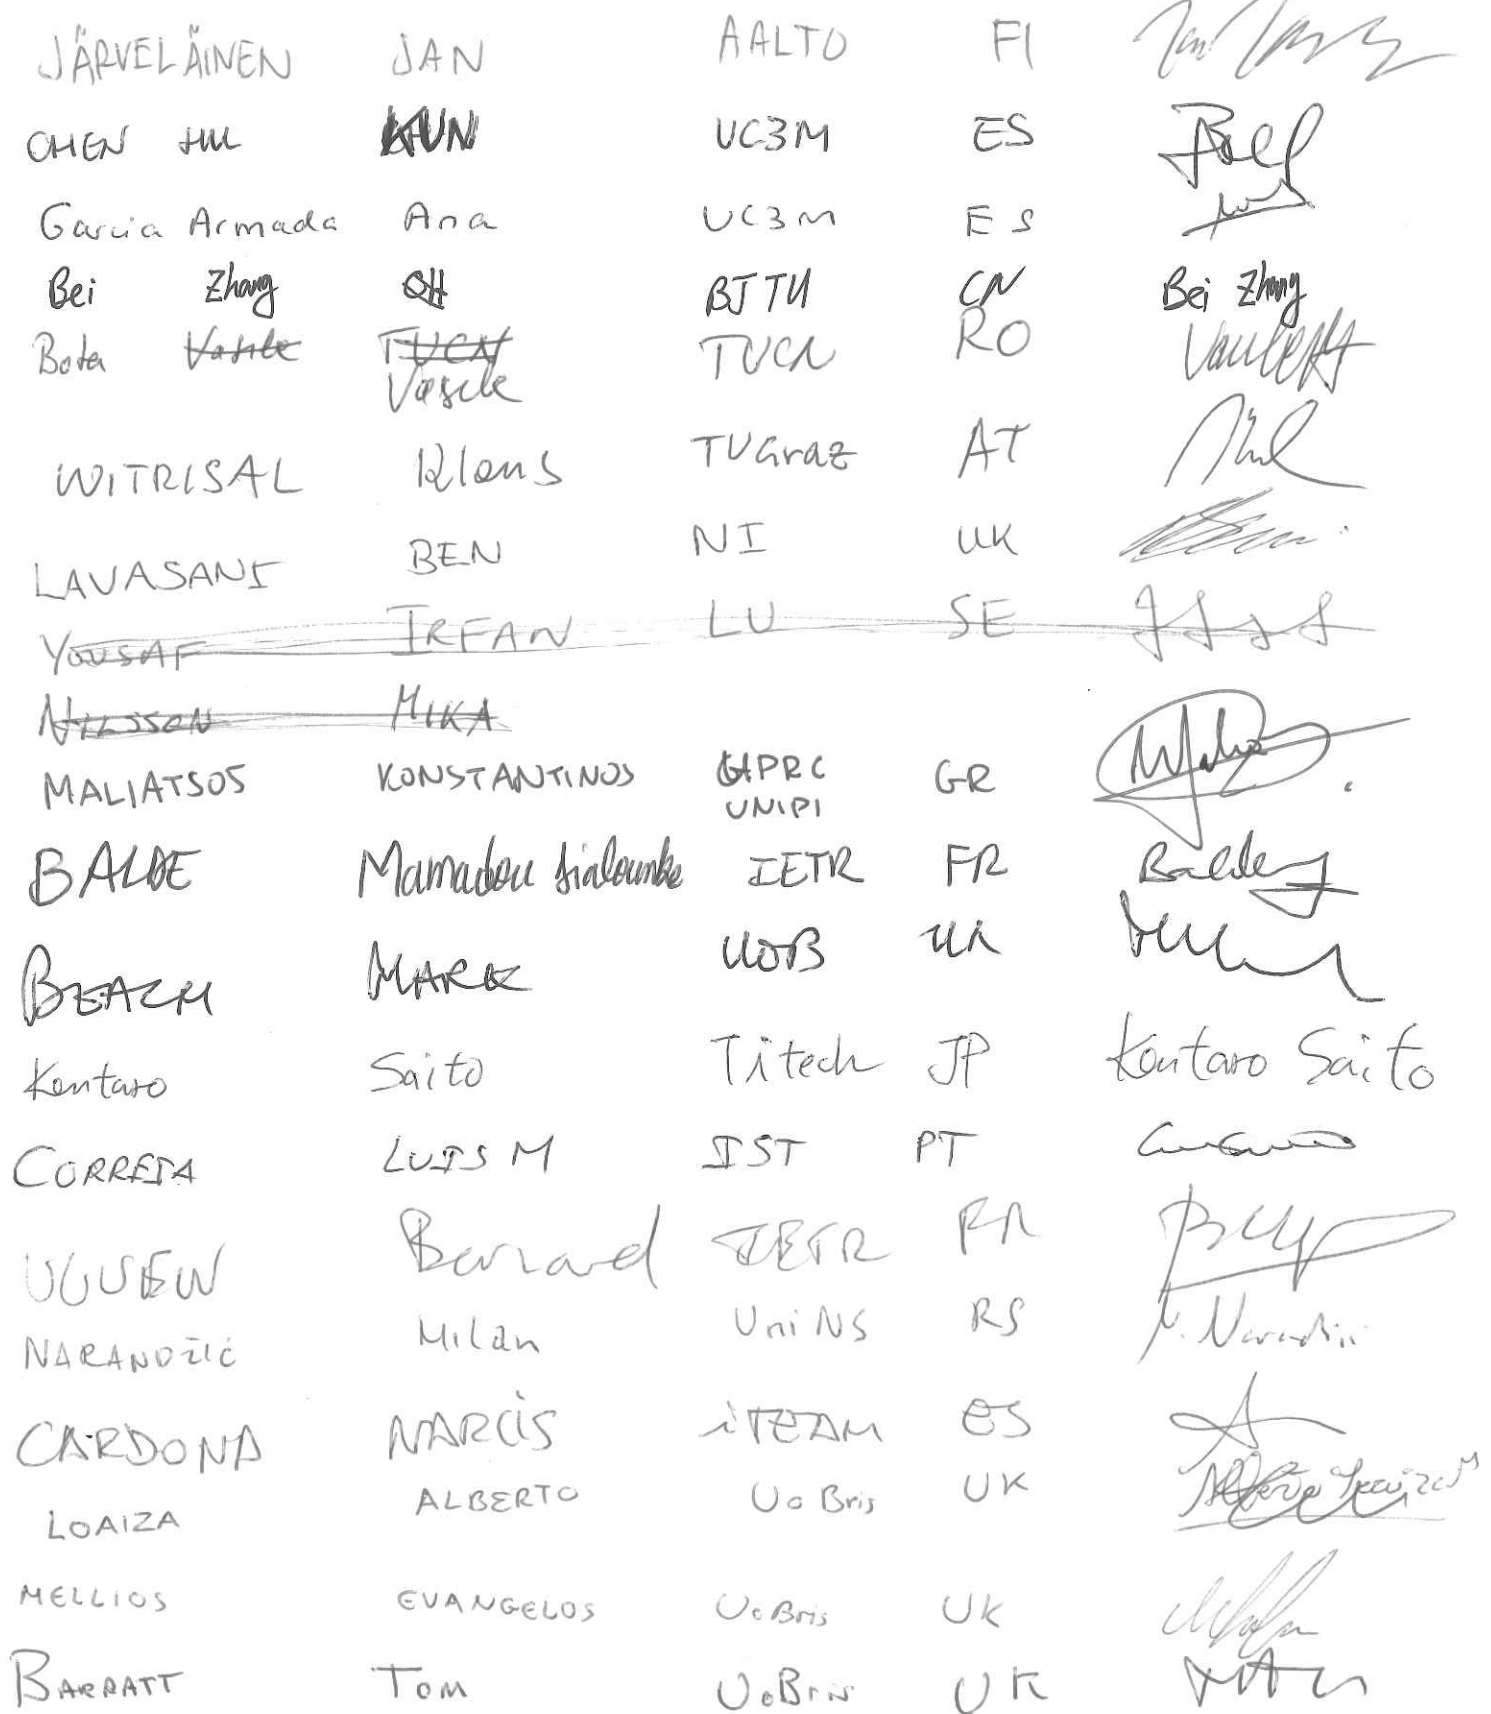 JÄRVELÄINEN JAN AALTO FI
CHEN HU KUN UC3M ES
Garcia Armada Ana UC3M ES
Bei Zhang BJTU CN Bei Zhang
Bota Vasile TUCN TUCN RO
Vasile
WITRISAL Klaus TUGraz AT
LAVASANI BEN NI UK
YOUSAF IRFAN LU SE
NILSSON MIKA
MALIATSOS KONSTANTINOS UPRC GR
UNIPI
BALDE Mamadou IETR FR Balde
BEACH MARK UOB UK
Kentaro Saito Titech JP Kentaro Saito
CORREIA LUIS M IST PT
UGUEN Bernard IETR FR
NARANDŽIĆ Milan UniNS RS
CARDONA NARCIS iTEAM ES
LOAIZA ALBERTO UoBris UK
MELLIOS EVANGELOS UoBris UK
BARRATT TOM UoBris UK